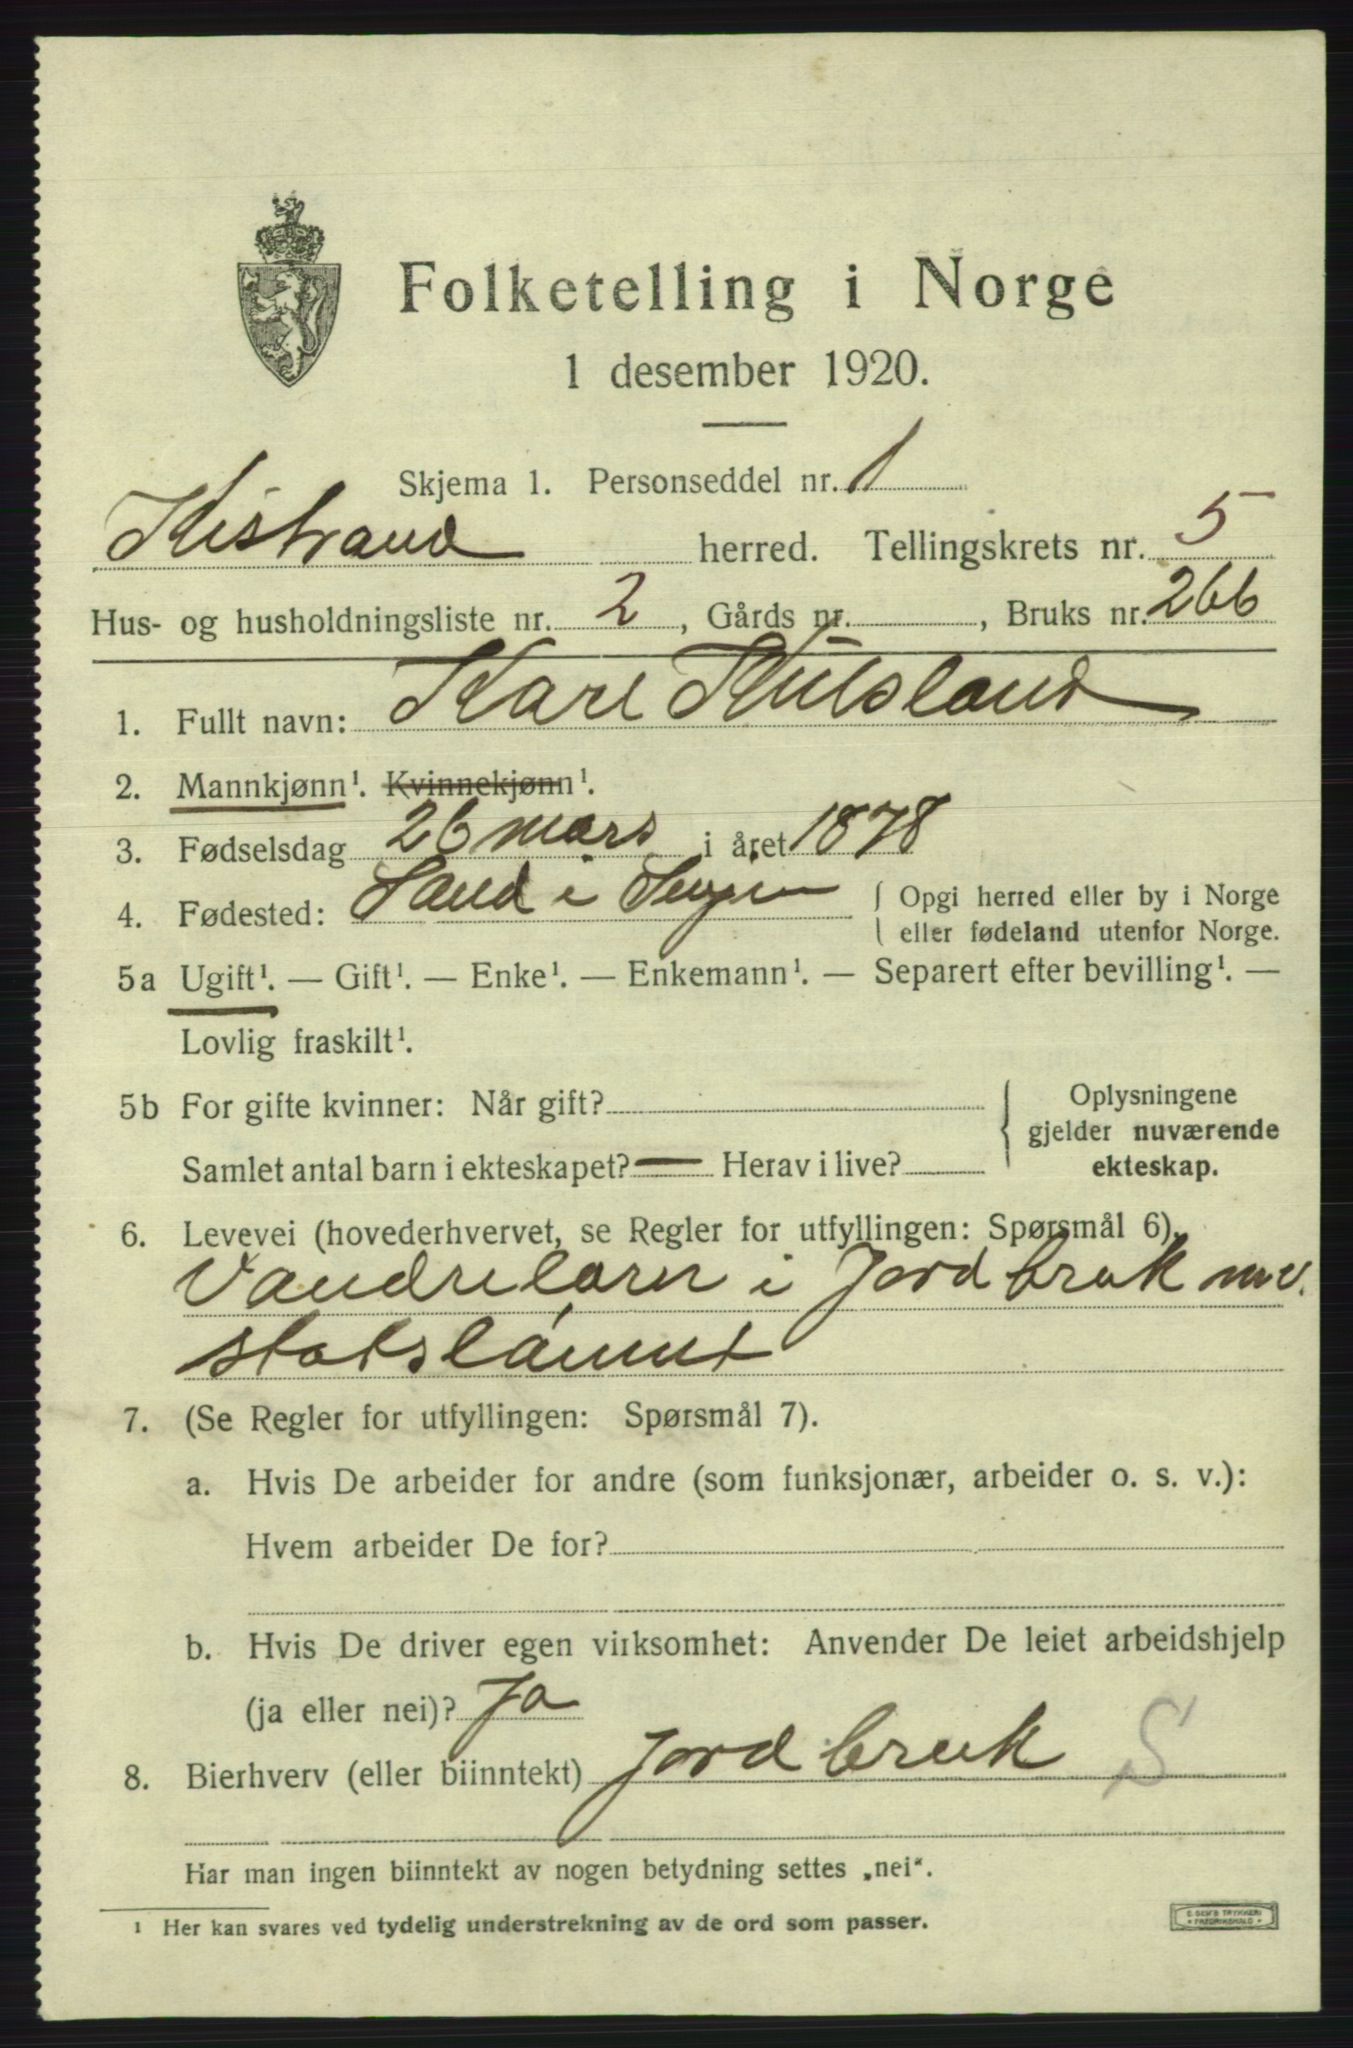 Folketelling i Norge
1 desember 1920.
Skjema 1. Personseddel nr. 1
Kistrand herred. Tellingskrets nr. 5
Hus- og husholdningsliste nr. 2, Gårds nr. , Bruks nr. 266
1. Fullt navn: Karl
2. Mannkjønn¹. Kvinnekjønn¹.
3. Fødselsdag 26 mars i året 1878
4. Fødested: Sand i
{ Opgi herred eller by i Norge
eller fødeland utenfor Norge.
5a Ugift¹. — Gift¹. — Enke¹. — Enkemann¹. — Separert efter bevilling¹. —
Lovlig fraskilt¹.
5b For gifte kvinner: Når gift?
Samlet antal barn i ekteskapet? — Herav i live?
{ Oplysningene
gjelder nuværende
ekteskap.
6. Levevei (hovederhvervet, se Regler for utfyllingen: Spørsmål 6).
Vandrelærer i Jordbruk m.v.
statslønnet
7. (Se Regler for utfyllingen: Spørsmål 7).
a. Hvis De arbeider for andre (som funksjonær, arbeider o. s. v.):
Hvem arbeider De for?
b. Hvis De driver egen virksomhet: Anvender De leiet arbeidshjelp
(ja eller nei)? Ja
8. Bierhverv (eller biinntekt) Jordbruk S
Har man ingen biinntekt av nogen betydning settes „nei“.
¹ Her kan svares ved tydelig understrekning av de ord som passer.
E. SEM'S TRYKKERI
FREDRIKSHALD